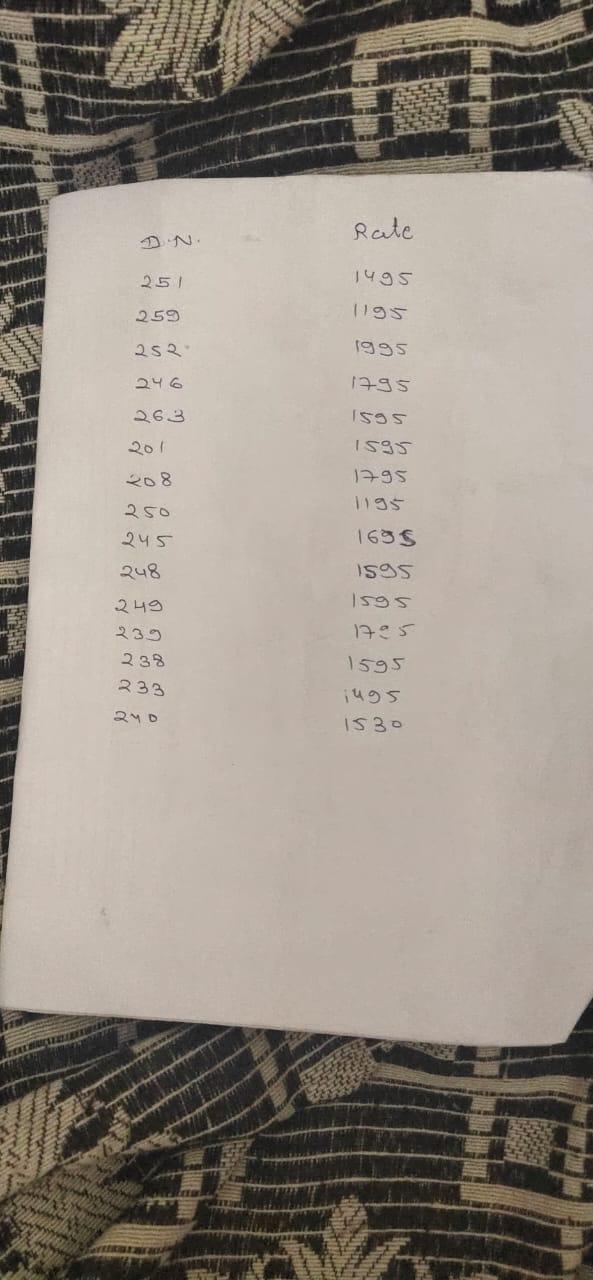 D.N. Rate
251 1495
259 1195
252 1995
246 1795
263 1595
201 1595
208 1795
250 1195
245 1695
248 1595
249 1595
239 1795
238 1595
233 1495
240 1530